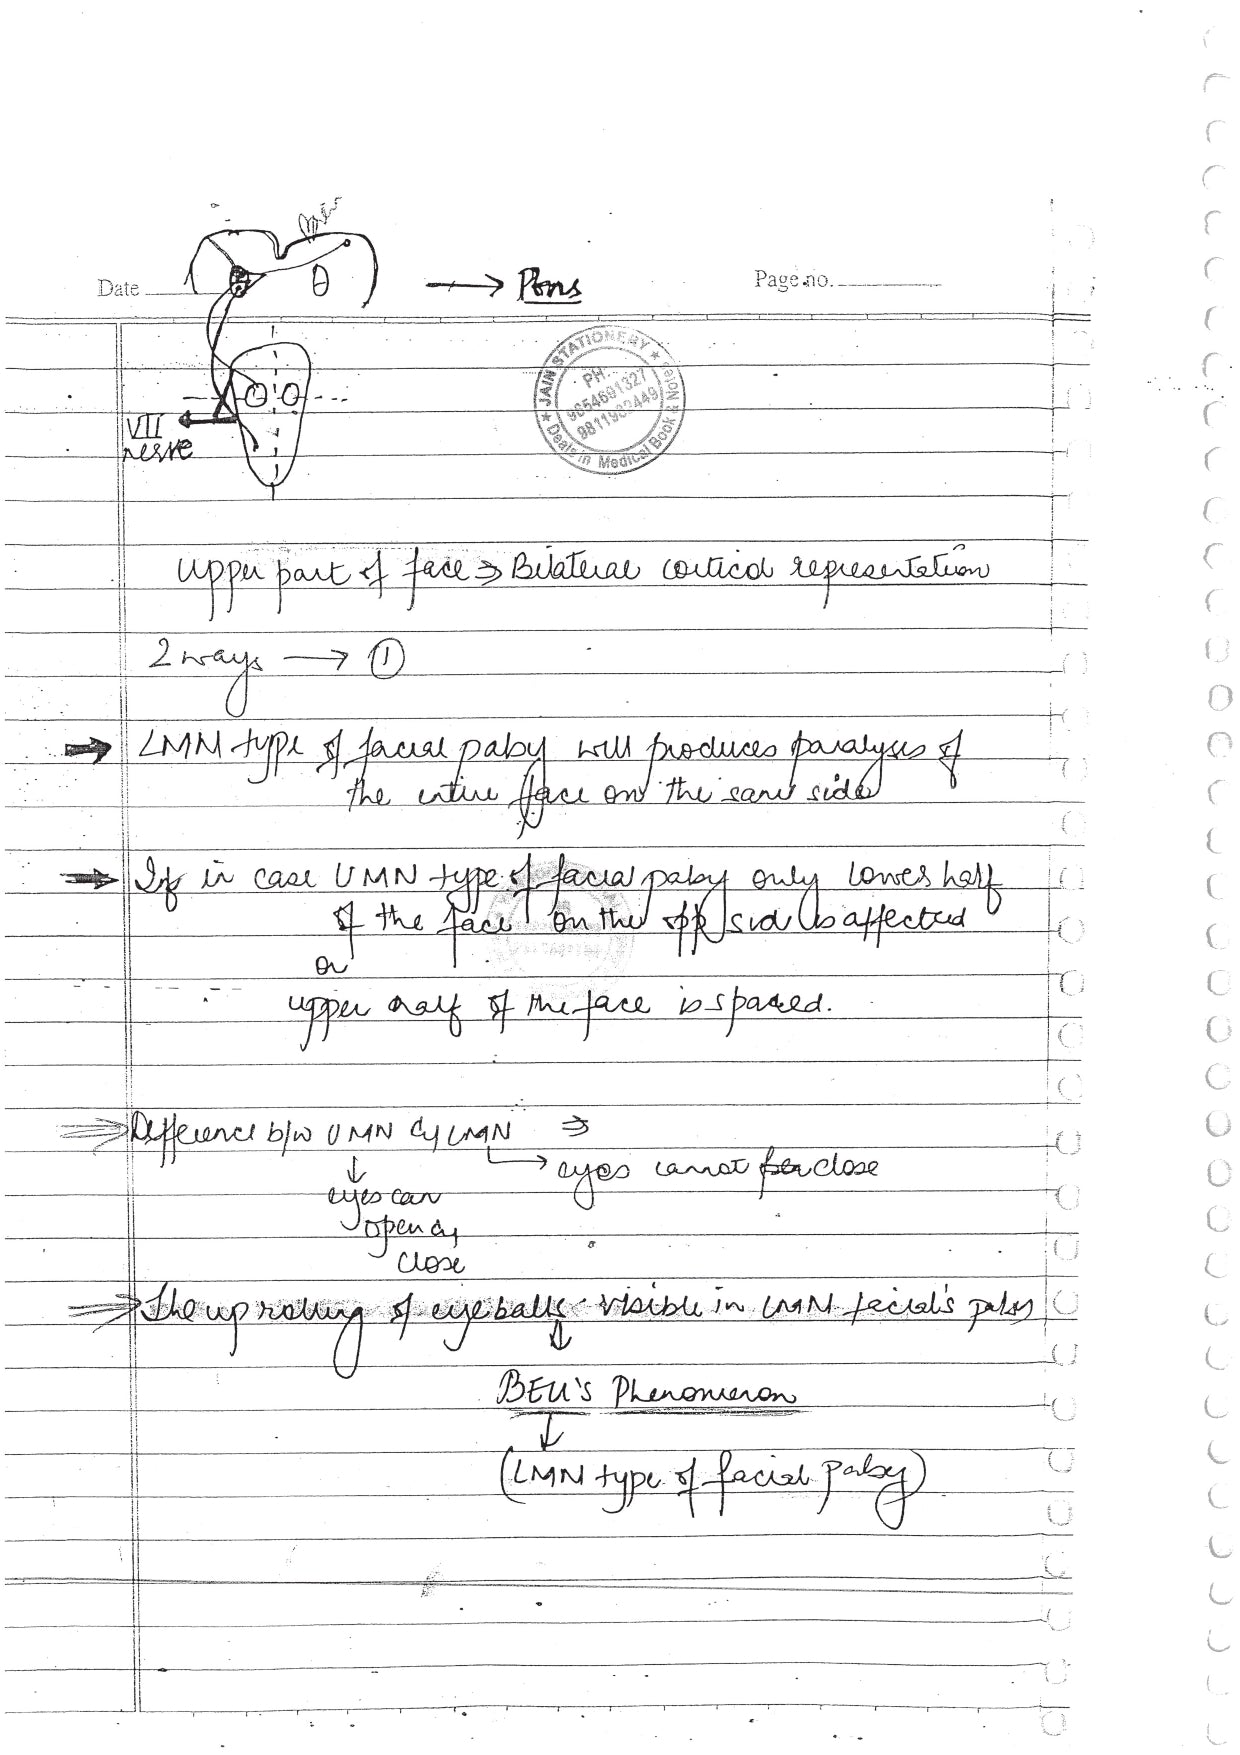 Date
Page no.
→ Pons
JAIN STATIONERY
PH.
9654691327
9811962449
Deals in Medical Book & Notes
VII
nerve
Upper part of face ⇒ Bilateral cortical representation
2 ways → ①
→ LMN type of facial palsy will produces paralysis of
the entire face on the same side
→ If in case UMN type of facial palsy only lower half
of the face on the opp side is affected
or
upper half of the face is spared.
⇒ Difference b/w UMN & LMN ⇒
↓ → eyes cannot close
eyes can
open &
close
⇒ The up rolling of eyeballs visible in LMN facial's palsy
↓
BELL'S Phenomenon
↓
(LMN type of facial palsy)